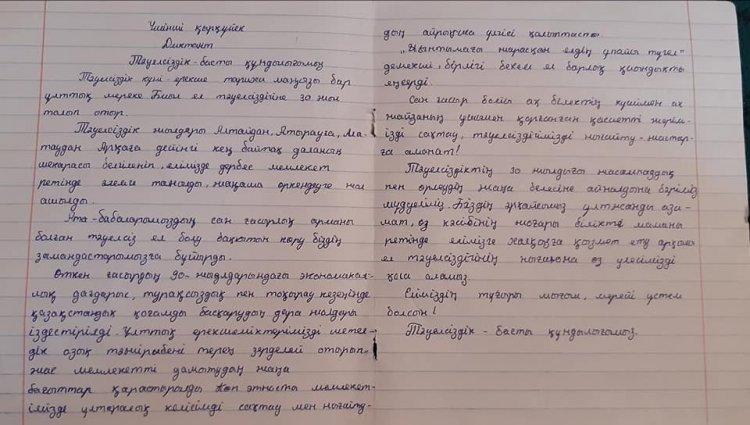 Үшінші қыркүйек
Диктант
Тәуелсіздік-басты құндылығымыз
Тәуелсіздік күні-ерекше тарихи маңызы бар
ұлттық мереке. Биыл ел тәуелсіздігіне 30 жыл
толып отыр.
Тәуелсіздік жылдары Алтайдан, Атырауға, Ала-
таудан Арқаға дейінгі кең байтақ даланың
шекарасы бегіленіп, елімізде дербес мемлекет
ретінде әлемге танылды, жаңаша өркендеуге жол
ашылды.
Ата-бабаларымыздың сан ғасырлық арманы
болған тәуелсіз ел болу бақытын көру біздің
замандастарымызға бұйырды.
Өткен ғасырдың 90-жылдарындағы экономикал-
лық дағдарыс, тұрақсыздық пен тоқырау кезеңінде
қазақстандық қоғамды басқарудың дара жолдары
іздестірілді. Ұлттық ерекшеліктерімізді шете-
дік озық тәжірибені терең зерделей отырып
жас мемлекетті дамытудың жаңа
бағыттар қарастырылды. Көп этносты мемлекет-
імізде ұлтаралық келісімді сақтау мен нығайту-
дың айрықша үлгісі қалыптасты.
"Ынтымағы жарасқан елдің ұпайы түгел"
демекші, бірлігі бекем ел барлық қиындықты
еңсерді.
Сан ғасыр бойы ақ білектің күшімен ақ
найзаның ұшымен қорғанған қасиетті жерім-
ізді сақтау, тәуелсіздігімізді нығайту-жастар-
ға аманат!
Тәуелсіздіктің 30 жылдығы жасампаздық
пен өрлеудің жаңа белесіне айналдына бәріміз
мүдделіміз. Біздің әрқайсымыз ұлтжанды аза-
мат, өз кәсібінің жоғары білікті маманы
ретінде елімізге халқыға қызмет ету арқылы
ел тәуелсіздігінің нығаюына өз үлесімізді
қоса аламыз.
Еліміздің тұғыры мығым, мерейі үстем
болсын!
Тәуелсіздік - басты құндылығымыз.